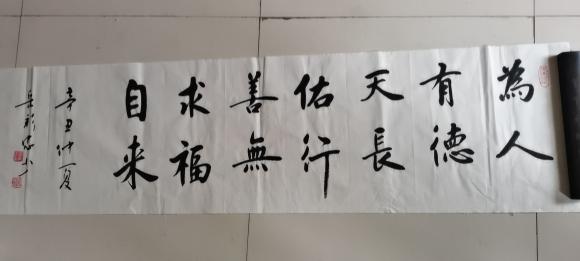 為人
有德
天長
佑行
善無
求福
自来
辛丑仲夏